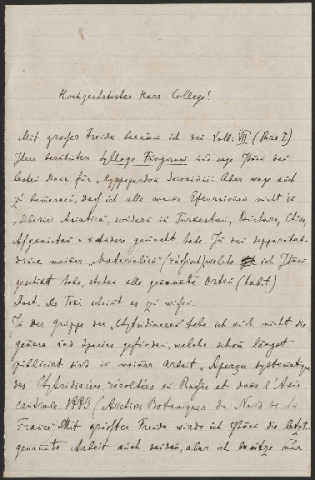 Hochgeehrtester Herr College!
Mit grosser Freude bekamm ich das Voll. VII (Pars I.)
Ihres berühmten Sylloge Fungorum und sage Ihnen den
besten Dank für „ Aber wage auch
zu bemerken, dass ich alle meine Excursionen nicht in
„ Asiatica, sondern in Turkestan, Buchara, Chiwa,
Afganistan gemacht habe. In den
meiner „Materialien" welche ich Ihnen
geschickt habe, stehen alle genannte Orten (habit).
Doct. de Toni scheint es zu wissen.
In der Gruppe der „Ustilagineen" habe ich auch nicht die
genera und species gefunden, welche schon längst
publicirt sind in meiner Arbeit „Aperçu systématique
des récoltées en Russie et dans l'Asie
centrale 1889 (Archives Botaniques du Nord de la
France". Mit grösster Freude würde ich Ihnen die letzt
genannte Arbeit auch senden, aber ich besitze nur